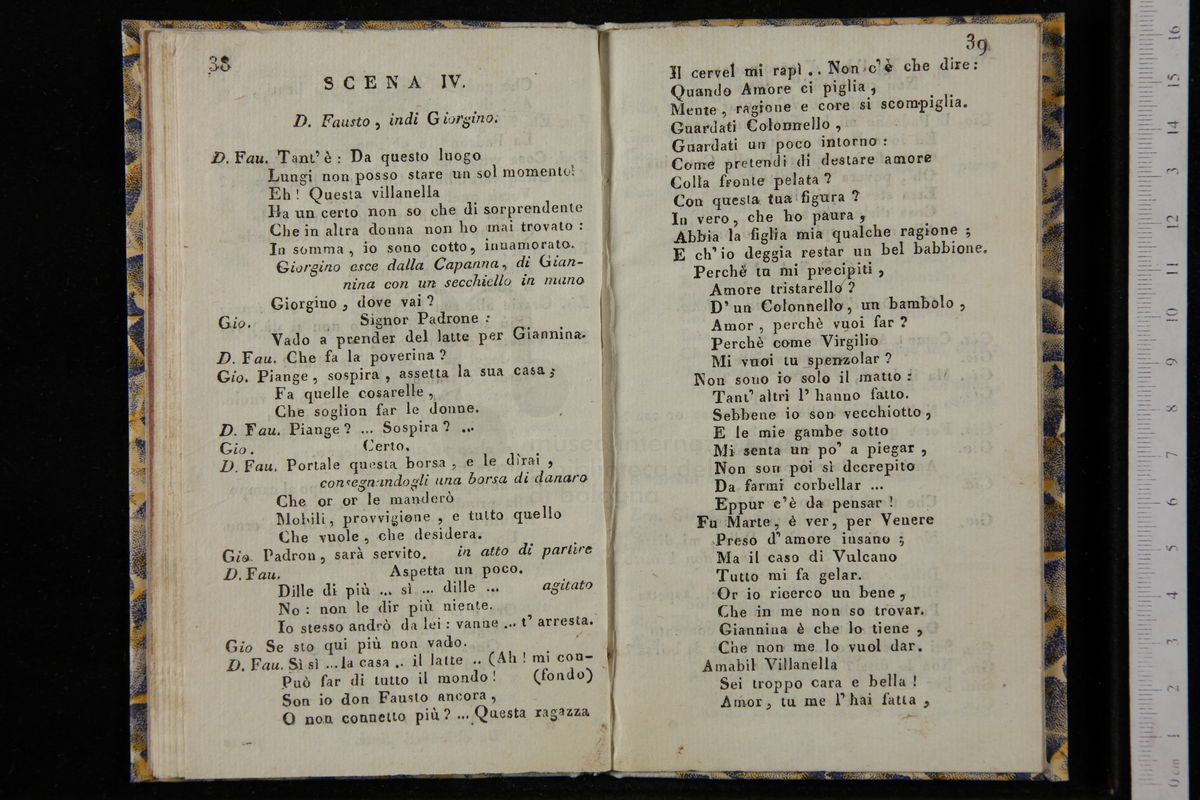 38
SCENA IV.
D. Fausto, indi Giorgino.
D. Fau. Tant' è : Da questo luogo
Lungi non posso stare un sol momento!
Eh ! Questa villanella
Ha un certo non so che di sorprendente
Che in altra donna non ho mai trovato :
In somma, io sono cotto, innamorato.
Giorgino esce dalla Capanna, di Gian-
nina con un secchiello in mano
Giorgino, dove vai ?
Gio. Signor Padrone :
Vado a prender del latte per Giannina.
D. Fau. Che fa la poverina ?
Gio. Piange, sospira, assetta la sua casa ;
Fa quelle cosarelle,
Che soglion far le donne.
D. Fau. Piange ? ... Sospira ? ...
Gio. Certo.
D. Fau. Portale questa borsa, e le dirai,
consegnandogli una borsa di danaro
Che or or le manderò
Mobili, provvigione, e tutto quello
Che vuole, che desidera.
Gio. Padron, sarà servito. in atto di partire
D. Fau. Aspetta un poco.
Dille di più ... sì ... dille ... agitato
No : non le dir più niente.
Io stesso andrò da lei : vanne ... t' arresta.
Gio Se sto qui più non vado.
D. Fau. Sì sì ... la casa .. il latte .. (Ah ! mi con-
Può far di tutto il mondo ! (fondo)
Son io don Fausto ancora,
O non connetto più ? ... Questa ragazza
39
Il cervel mi rapì .. Non c'è che dire :
Quando Amore ci piglia,
Mente, ragione e core si scompiglia.
Guardati Colonnello,
Guardati un poco intorno :
Come pretendi di destare amore
Colla fronte pelata ?
Con questa tua figura ?
In vero, che ho paura,
Abbia la figlia mia qualche ragione ;
E ch' io deggia restar un bel babbione.
Perchè tu mi precipiti,
Amore tristarello ?
D' un Colonnello, un bambolo,
Amor, perchè vuoi far ?
Perchè come Virgilio
Mi vuoi tu spenzolar ?
Non sono io solo il matto :
Tant' altri l' hanno fatto.
Sebbene io son vecchiotto,
E le mie gambe sotto
Mi senta un po' a piegar,
Non son poi sì decrepito
Da farmi corbellar ...
Eppur c'è da pensar !
Fu Marte, è ver, per Venere
Preso d' amore insano ;
Ma il caso di Vulcano
Tutto mi fa gelar.
Or io ricerco un bene,
Che in me non so trovar.
Giannina è che lo tiene,
Che non me lo vuol dar.
Amabil Villanella
Sei troppo cara e bella !
Amor, tu me l' hai fatta,